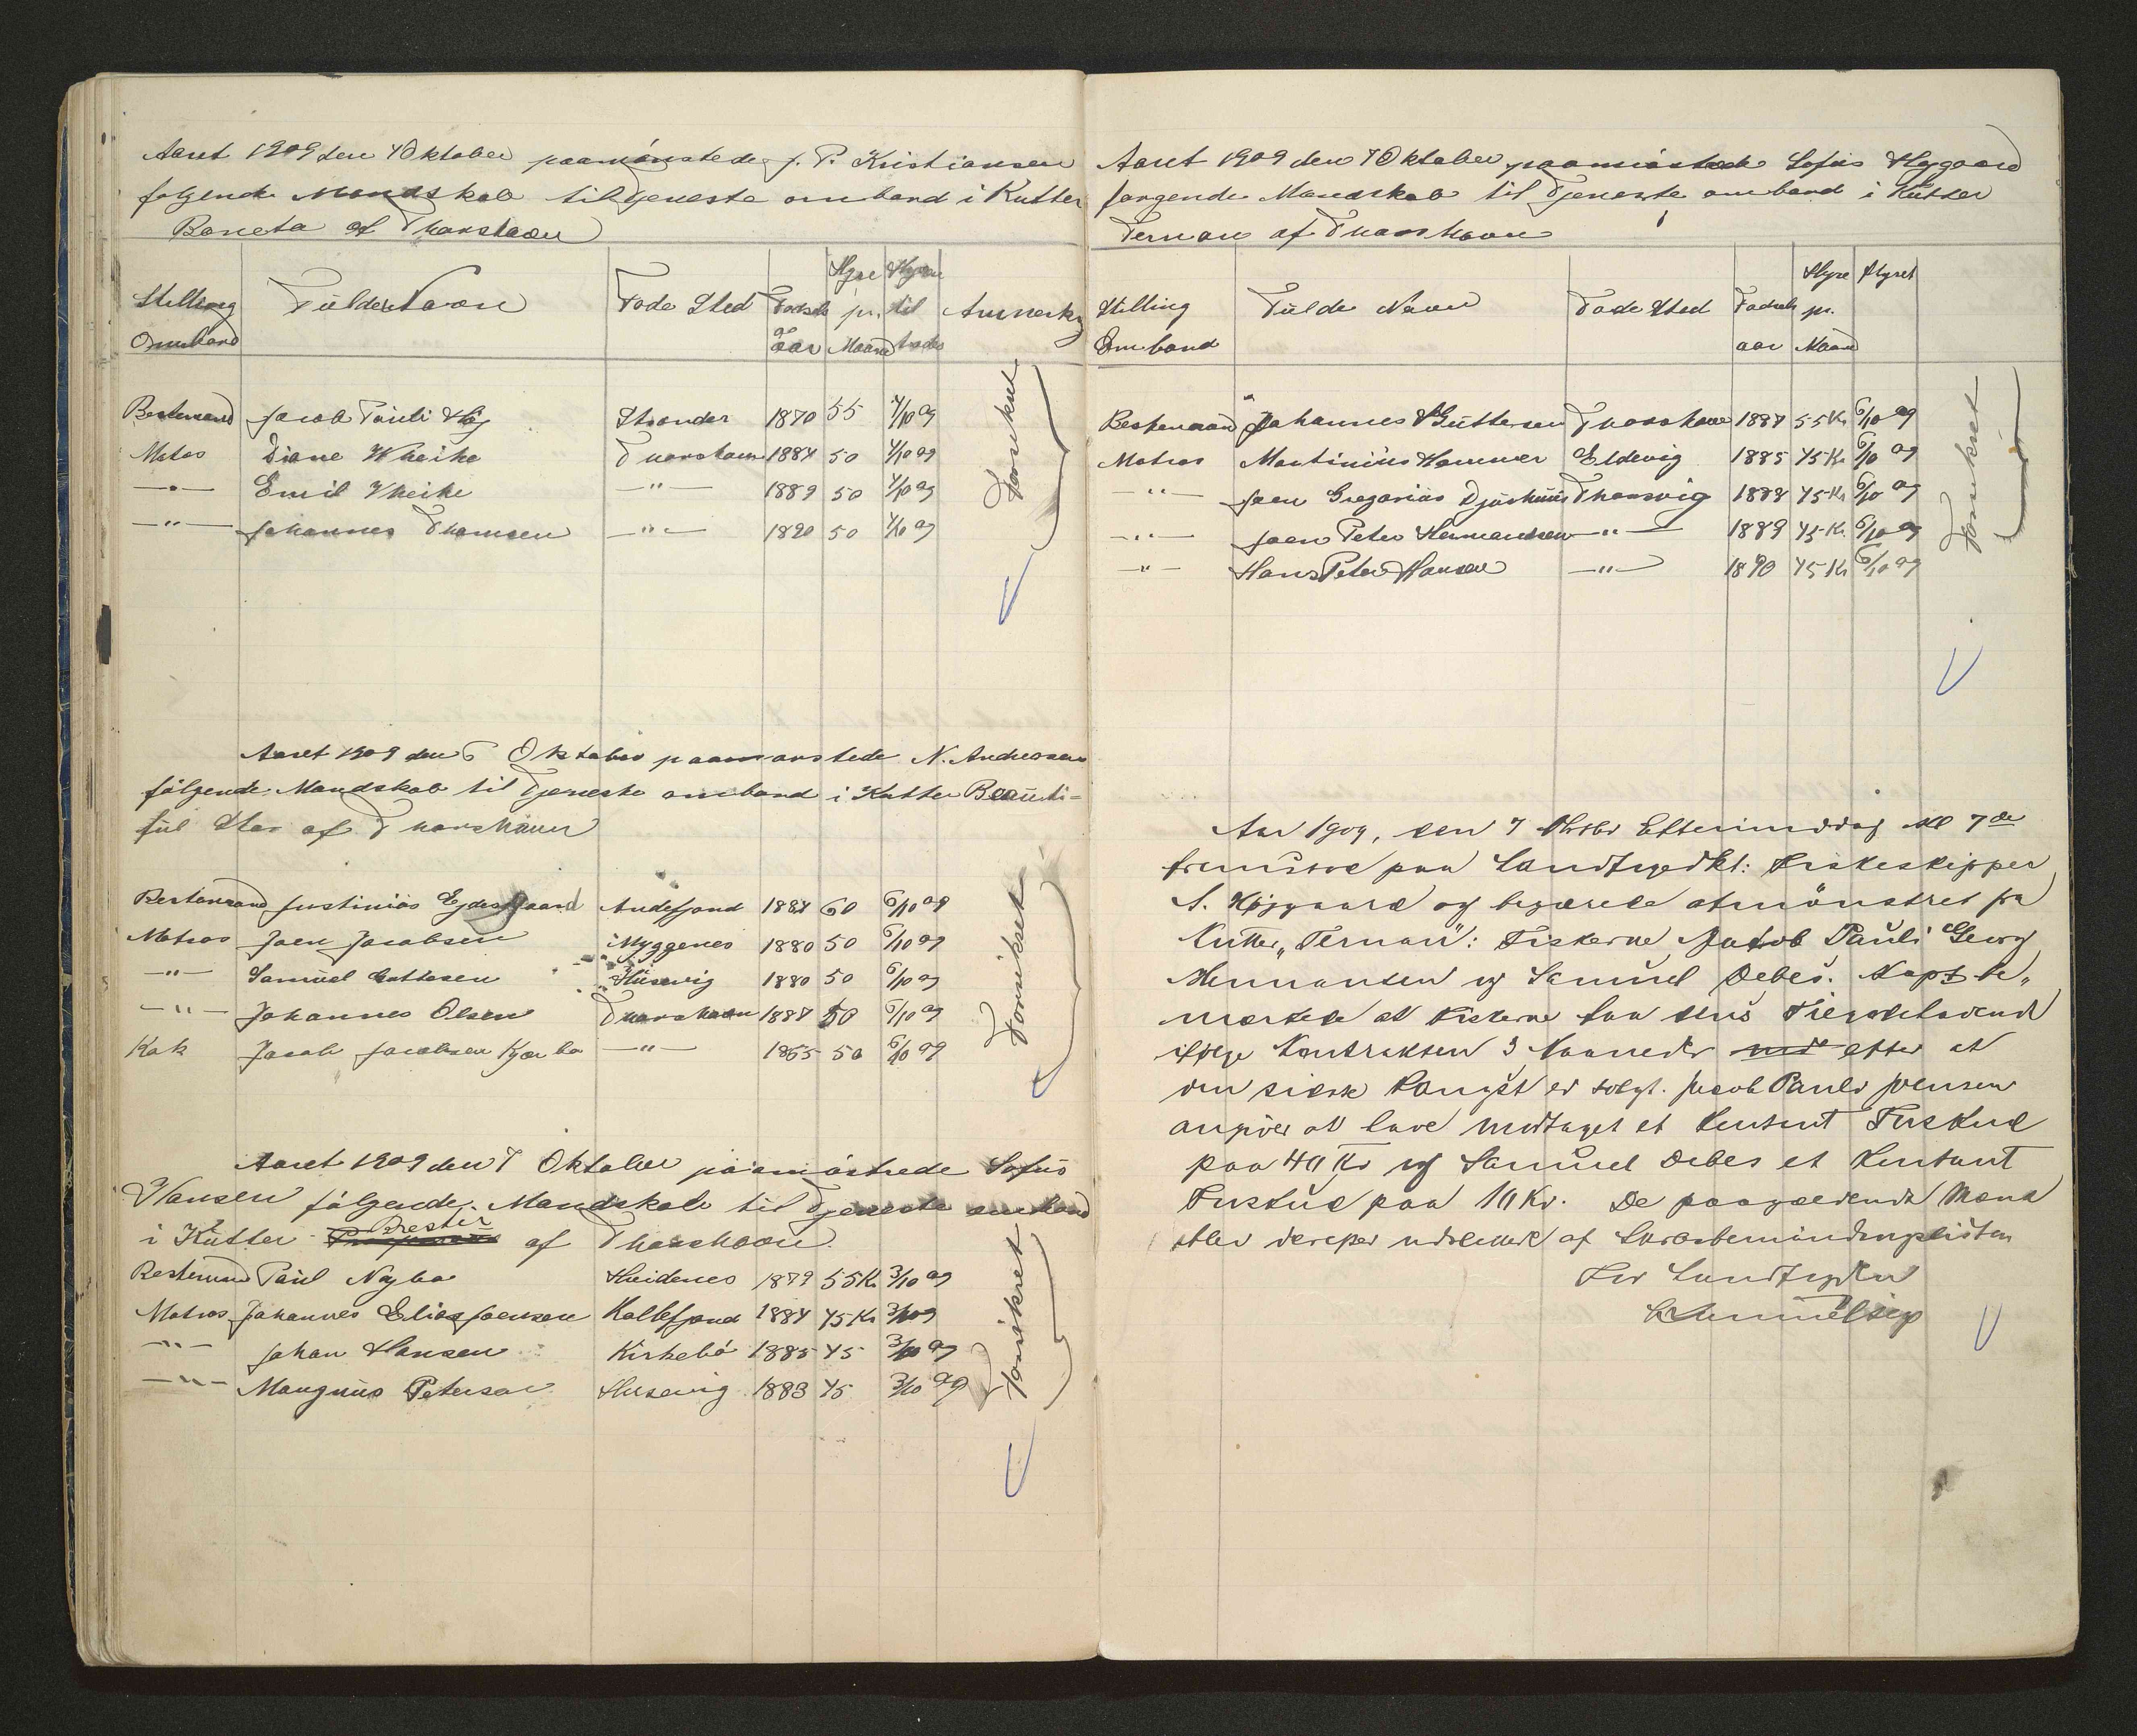 Aaret 1909 den 4 Oktober paamönstede J. P. Kristiansen
følgende Mandskab til Tjeneste ombord i Kutter
Beneta af Thorshavn
Stilling Ombord Fulde Navn Føde Sted Fødsels aar Hyre pr. Maaned Hyren til trædes Anmerkg
Bestmand Jacob Pauli Høj Strander 1870 55 4/10 09
Matros Diane Wheihe Thorshavn 1884 50 4/10 09
—"— Emil Wheihe —"— 1889 50 4/10 09
—"— Johannes Thomsen —"— 1890 50 4/10 09
Forsikret
Aaret 1909 den 6 Oktober paamønstede N. Andreasen
følgende Mandskab til Tjeneste ombord i Kutter Beauti=
ful Star af Thorshavn
Bestemand Justinius Ejdesgaard Andefjord 1884 60 6/10 09
Matros Joen Jacobsen Myggenes 1880 50 6/10 09
—"— Samuel Guttesen Husevig 1880 50 6/10 09
—"— Johannes Olsen Thorshavn 1887 50 6/10 09
Kok Jacob Jacobsen Kjærbo —"— 1865 50 6/10 09
Forsikret
Aaret 1909 den 7 Oktober paamönstrede Sofus
Hansen følgende Mandskab til Tjeneste ombord
i Kutter Prester af Thorshavn
Bestemand Paul Nygbo Hvidenes 1879 55 Kr 3/10 09
Matros Johannes Elias Joensen Kolbefjord 1884 45 Kr 3/10 09
—"— Johan Hansen Kirkebö 1885 45 3/10 09
—"— Maugnus Petersen Husevig 1883 45 3/10 09
Forsikret
Aaret 1909 den 7 Oktober paamönstrede Sofus Højgaard
følgende Mandskab til Tjeneste ombord i Kutter
Ternan af Thorshavn
Stilling Ombord Fulde Navn Føde Sted Fødsels aar Hyre pr. Maaned Hyret
Bestemand Johannes Guttesen Thorshavn 1887 55 Kr 6/10 09
Matros Martinius Hammer Eldevig 1885 45 Kr 6/10 09
—"— Joen Gregorius Djurhuus Thorsvig 1888 45 Kr 6/10 09
—"— Joen Peter Hermansen —"— 1889 45 Kr. 6/10 09
—"— Hans Peter Hansen —"— 1890 45 Kr 6/10 09
Forsikret
Aar 1909, den 7 Oktbr Eftermiddag Kl 7 de
fremstod paa Landfogedkt: Fiskeskipper
S. Højgaard og begærede afmönstret fra
Kutter „Ternan": Fiskerne Jakob Pauli Georg
Hermansen og Samuel Debes. Kapt be„
mærkede at Fiskerne
ifölge Kontrakten 3 Maaneder efter at
Fangst er solgt. Jacob Pauli Joensen
angiver at have modtaget et Kontant Forskud
paa 40 Kr og Samuel Debes et Kontant
Forskud paa 10 Kr. De paagældende Mænd
blev derefter udslettede af
For Landfogden